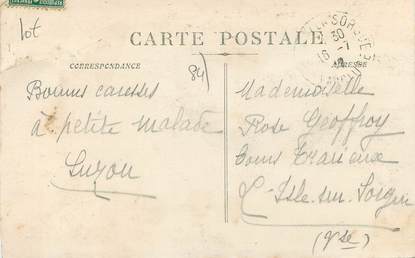 lot
CARTE POSTALE
CORRESPONDANCE
ADRESSE
84
Bonnes caresses
à petite malade
Suzon
Mademoiselle
Rose Geoffroy
Cours
L'Isle-sur-Sorgue
(Vse)